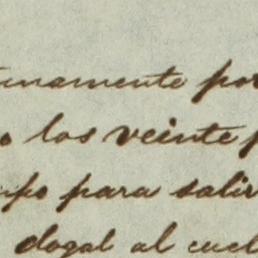 unamente por
o los veinte p
mpo para salir
dogal al cuel